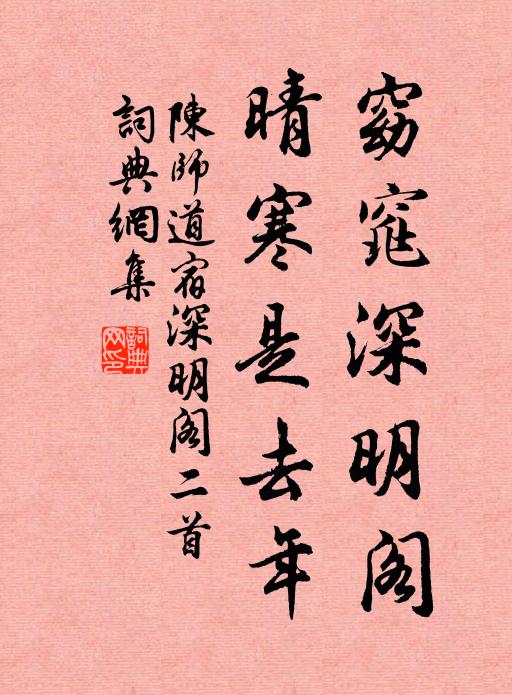 窈窕深明閣
晴寒是去年
陳師道宿深明閣二首
詞典網集
詞典网印